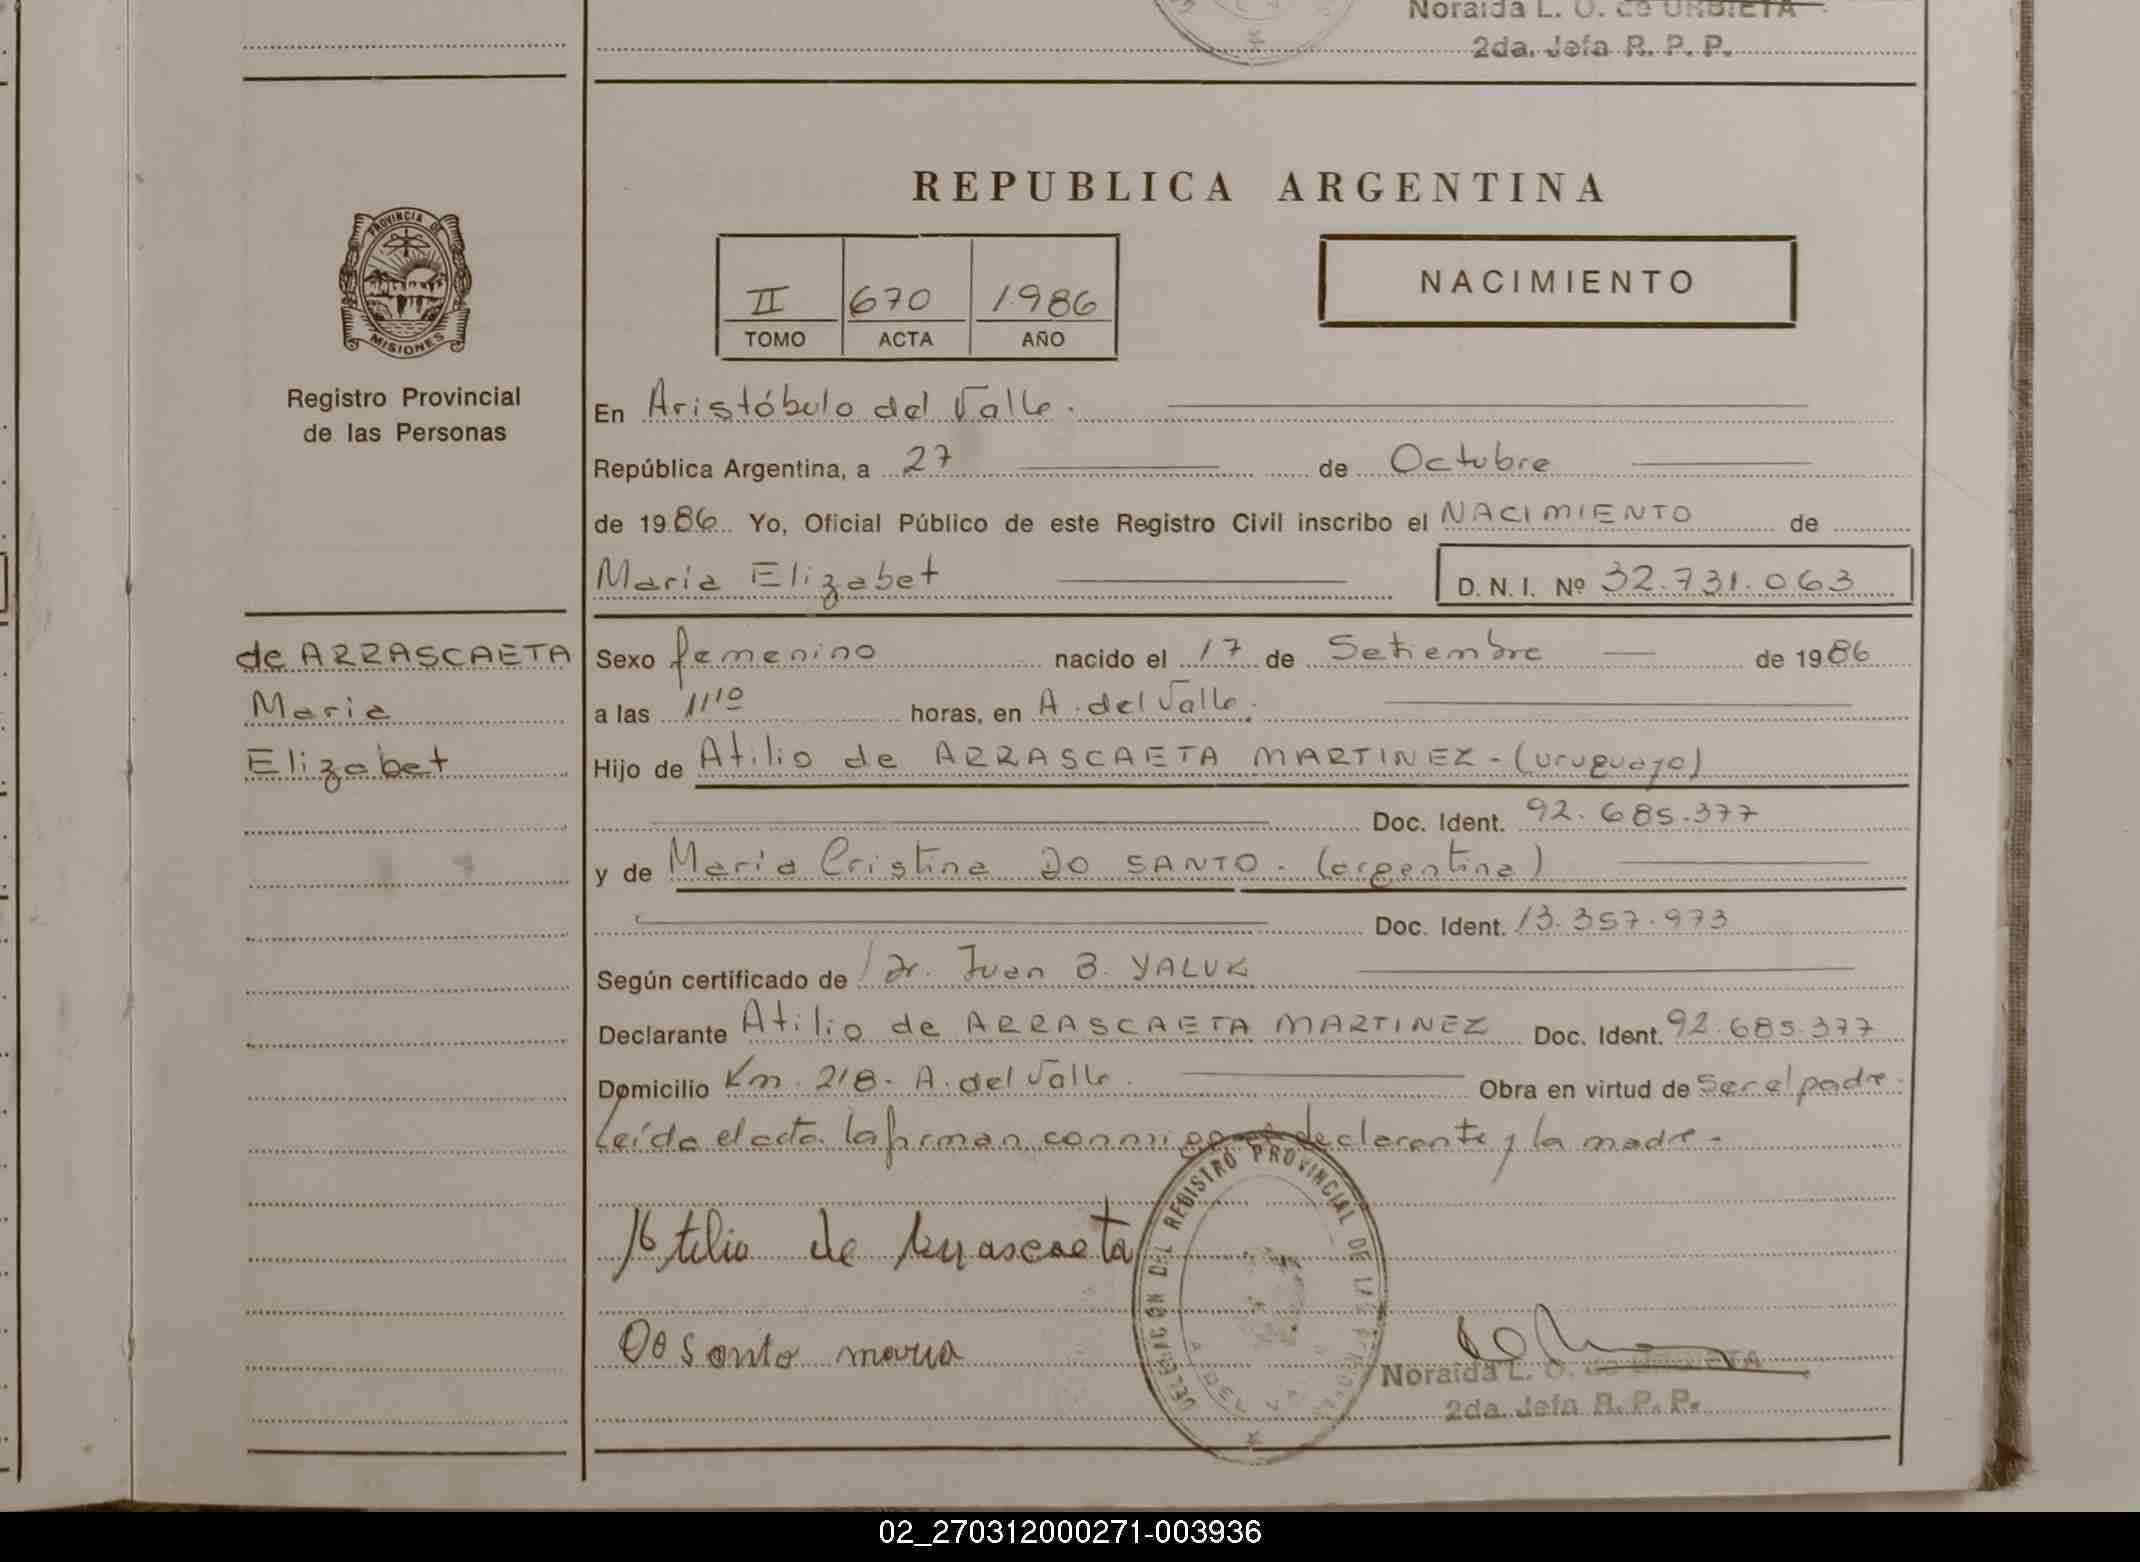 Noraida L. O. de URBIETA
2da. Jefa R. P. P.
REPUBLICA ARGENTINA
PROVINCIA DE
MISIONES
II 670 1986
TOMO ACTA AÑO
NACIMIENTO
Registro Provincial
de las Personas
En Aristóbulo del Valle.
República Argentina, a 27 de Octubre
de 1986 Yo, Oficial Público de este Registro Civil inscribo el NACIMIENTO de
Maria Elizabet D. N. I. Nº 32.731.063
de ARRASCAETA
Maria
Elizabet
Sexo femenino nacido el 17 de Setiembre de 1986
a las 11 10 horas, en A. del Valle.
Hijo de Atilio de ARRASCAETA MARTINEZ - (uruguayo)
Doc. Ident. 92.685.377
y de María Cristina DO SANTO - (argentina)
Doc. Ident. 13.357.973
Según certificado de Dr. Juan B. YALUK
Declarante Atilio de ARRASCAETA MARTINEZ Doc. Ident. 92.685.377
Domicilio Km. 218 - A. del Valle. Obra en virtud de Ser el padre.
Leída el acta, la firman conmigo el declarante y la madre -
Atilio de Arrascaeta
DELEGACIÓN DEL REGISTRO PROVINCIAL DE LAS
Do Santo maria
Noraida L. O. de URBIETA
2da. Jefa R. P. P.
02_270312000271-003936